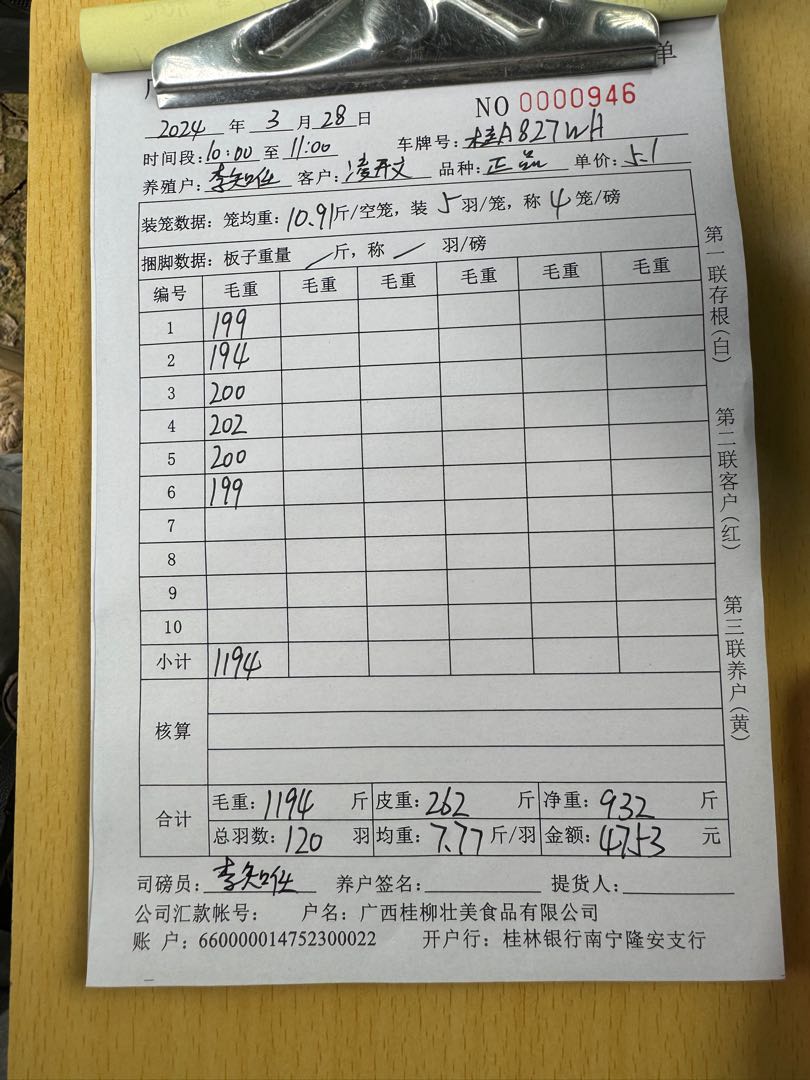 单
NO 0000946
2024 年 3 月 28 日
车牌号: 桂A827WH
时间段: 10:00 至 11:00
养殖户: 李知任 客户: 凌开文 品种: 正品 单价: 5.1
装笼数据: 笼均重: 10.91斤/空笼, 装 5 羽/笼, 称 4 笼/磅
捆脚数据: 板子重量 / 斤, 称 / 羽/磅
编号 毛重 毛重 毛重 毛重 毛重 毛重
1 199
2 194
3 200
4 202
5 200
6 199
7
8
9
10
小计 1194
核算
合计
毛重: 1194 斤 皮重: 262 斤 净重: 932 斤
总羽数: 120 羽 均重: 7.77 斤/羽 金额: 4753 元
司磅员: 李知任 养户签名: 提货人:
公司汇款帐号: 户名: 广西桂柳壮美食品有限公司
账 户: 660000014752300022 开户行: 桂林银行南宁隆安支行
第一联存根(白)
第二联客户(红)
第三联养户(黄)